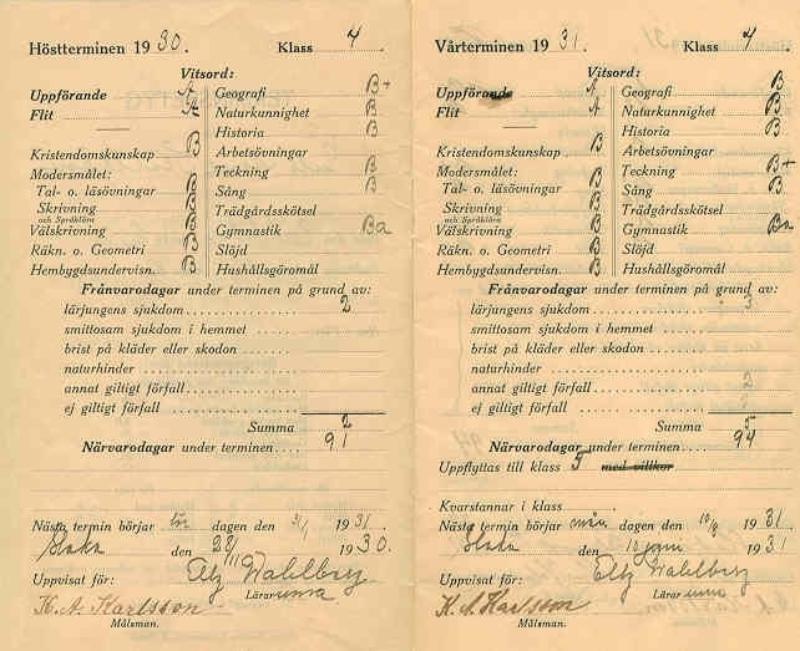 Höstterminen 1930. Klass 4
Vitsord:
Uppförande A
Flit A
Kristendomskunskap B
Modersmålet:
Tal- o. läsövningar B
Skrivning B
och Språklära
Välskrivning B
Räkn. o. Geometri B
Hembygdsundervisn. B
Geografi B+
Naturkunnighet B
Historia B
Arbetsövningar
Teckning B
Sång B
Trädgårdsskötsel
Gymnastik Ba
Slöjd
Hushållsgöromål
Frånvarodagar under terminen på grund av:
lärjungens sjukdom 2
smittosam sjukdom i hemmet
brist på kläder eller skodon
naturhinder
annat giltigt förfall
ej giltigt förfall
Summa 2
Närvarodagar under terminen 91
Nästa termin börjar dagen den 1931.
Slaka den 1930.
Uppvisat för: Elly Wahlberg
Lärarinna
K. A. Karlsson
Målsman.
Vårterminen 1931. Klass 4
Vitsord:
Uppförande A
Flit A
Kristendomskunskap B
Modersmålet:
Tal- o. läsövningar B
Skrivning B
och Språklära
Välskrivning B
Räkn. o. Geometri B
Hembygdsundervisn. B
Geografi B
Naturkunnighet B
Historia B
Arbetsövningar
Teckning B+
Sång B
Trädgårdsskötsel
Gymnastik Ba
Slöjd
Hushållsgöromål
Frånvarodagar under terminen på grund av:
lärjungens sjukdom 3
smittosam sjukdom i hemmet
brist på kläder eller skodon
naturhinder
annat giltigt förfall 2
ej giltigt förfall
Summa 5
Närvarodagar under terminen 94
Uppflyttas till klass 5 med villkor
Kvarstannar i klass
Nästa termin börjar mån dagen den 10/8 1931.
Slaka den 10 juni 1931
Uppvisat för: Elly Wahlberg
Lärarinna
K. A. Karlsson
Målsman.